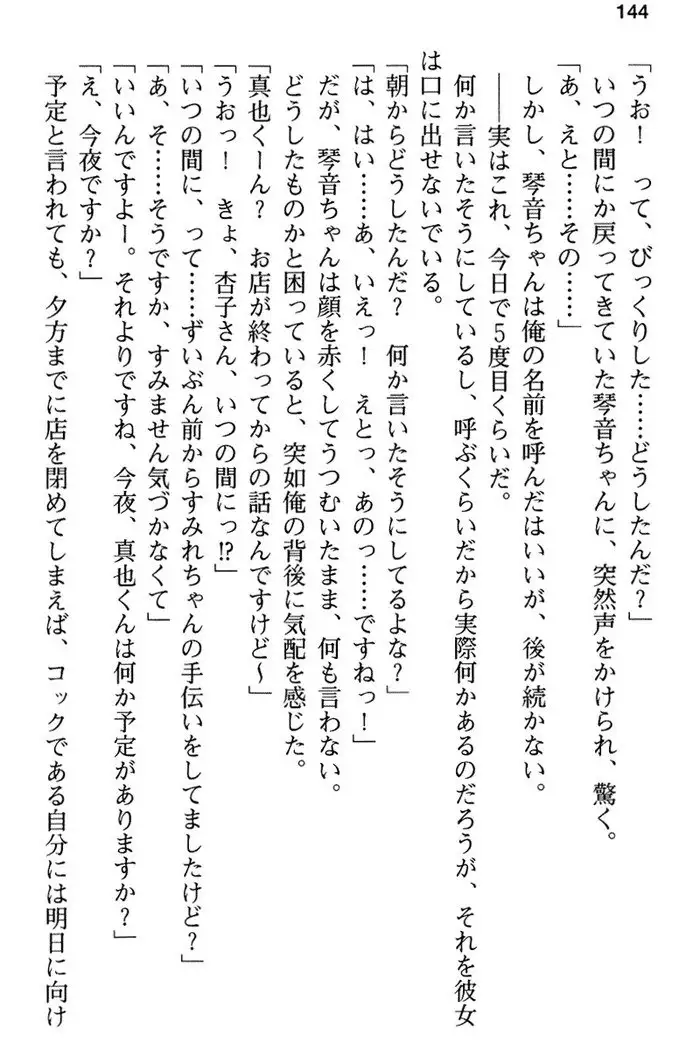 144
「うお！　って、びっくりした……どうしたんだ？」
いつの間にか戻ってきていた琴音ちゃんに、突然声をかけられ、驚く。
「あ、えと……その……」
しかし、琴音ちゃんは俺の名前を呼んだはいいが、後が続かない。
――実はこれ、今日で5度目くらいだ。
何か言いたそうにしているし、呼ぶくらいだから実際何かあるのだろうが、それを彼女
は口に出せないでいる。
「朝からどうしたんだ？　何か言いたそうにしてるよな？」
「は、はい……あ、いえっ！　えとっ、あのっ……ですねっ！」
だが、琴音ちゃんは顔を赤くしてうつむいたまま、何も言わない。
どうしたものかと困っていると、突如俺の背後に気配を感じた。
「真也くーん？　お店が終わってからの話なんですけど～」
「うおっ！　きょ、杏子さん、いつの間にっ!?」
「いつの間に、って……ずいぶん前からすみれちゃんの手伝いをしてましたけど？」
「あ、そ……そうですか、すみません気づかなくて」
「いいんですよー。それよりですね、今夜、真也くんは何か予定がありますか？」
「え、今夜ですか？」
予定と言われても、夕方までに店を閉めてしまえば、コックである自分には明日に向け